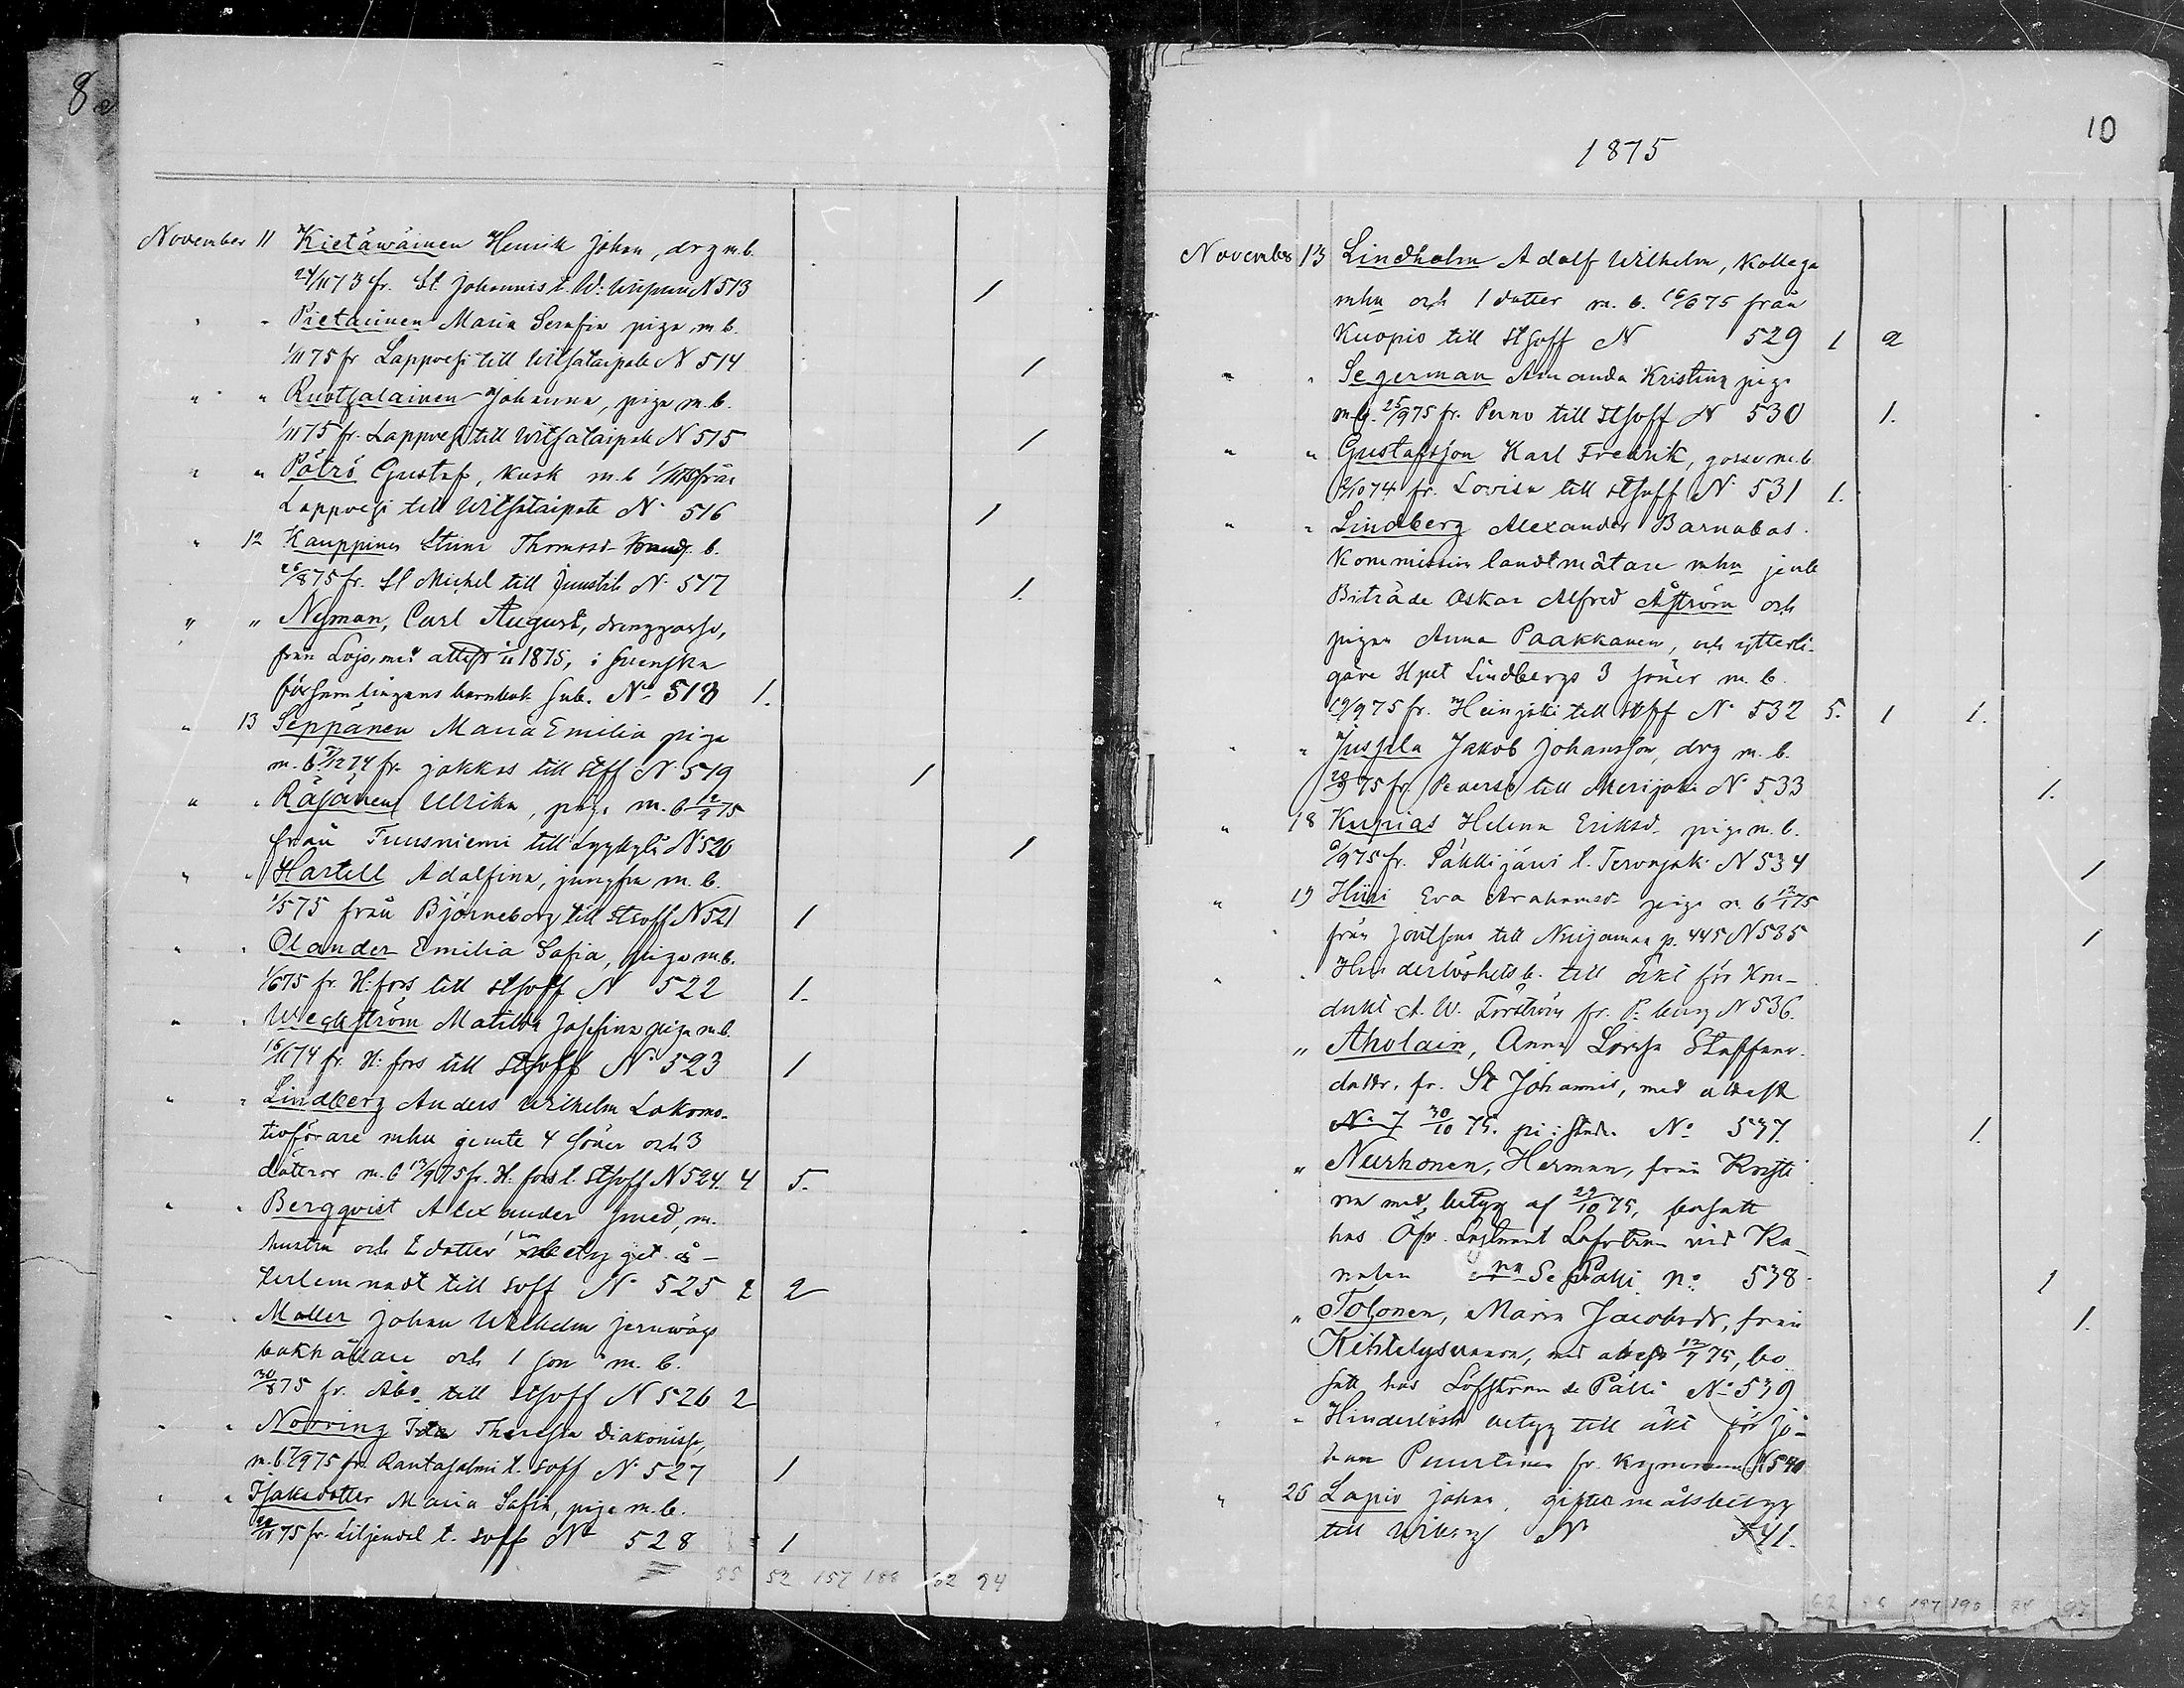 8
November 11 Kietäwäinen Henrik Johan, drg m.b.
24/11 73 fr. St. Johannis t. W: N 513 1
" " Pietarinen Maria Serafia piga m b.
1/11 75 fr Lappvesi till Witsataipale N 514 1
" " Ruotsalainen Johanna, piga m.b.
1/11 75 fr. Lappvesi till Witsataipale N 515 1
" " Pätrö Gustaf, kusk m.b 1/11 75 från
Lappvesi till Witsataipale N. 516 1
" 12 Kauppinen Thomasd. b.
26/8 75 fr. St Michel till Juustila N. 517 1.
" " Nyman, Carl August, drenggosse,
från Lojo, med attest 1875, i Svenska
församlingens barnbok sub. No 518 1.
" 13 Seppänen Maria Emilia piga
m. b 12 74 fr. Jakkas till Stff N. 519 1
" " Räsänen Ulrika, piga m. b 12/9 75
från Tuusniemi till Lyykylä N 520 1
" " Hartell Adolfina, jungfru m. b.
1/5 75 från Björneborg till Stsoff N 521 1
" " Olander Emilia Sofia, piga m.b.
1/6 75 fr. H:fors till Stsoff N 522 1.
" " Weckström Matilda Josefina piga m.b.
16/11 74 fr. H: fors till Stsoff No 523 1
" " Lindberg Anders Wilhelm Lokomo-
tivförare mhu jemte 4 söner och 3
döttrar m. b 13/9 75 fr. H. fors t. Stsoff N 524. 4 5.
" " Bergqvist Alexander smed, m.
hustru och dotter betyget å-
terlemnadt till soff No 525 2 2
" " Möller Johan Wilhelm jernwägs
bokhållare och 1 son m. b.
30/8 75 fr. Åbo till Stsoff N 526 2
" " Norring Ida Theresia diakonissa,
m. b. 7/9 75 fr. Rantasalmi t. soff No 527 1
" " Isaksdotter Maria Sofia, piga m.b.
75 fr. Liljendal t. soff No 528 1
55 52 157 188 62 94
10
1875
November 13 Lindholm Adolf Wilhelm, Kollega
mhu och 1 dotter m. b. 16/6 75 från
Kuopio till Stsoff N 529 1 2
" " Segerman Amanda Kristina piga
m.b. 25/9 75 fr. Perno till Stsoff N 530 1.
" " Gustafsson Karl Fredrik, gosse m.b
10 74 fr. Lovisa till Stsoff N 531 1.
" " Lindberg Alexander Barnabas.
Kommissions landtmätare mhu jemte
Biträde Oskar Alfred Åström och
pigan Anna Paakkanen, och ytterli-
gare Hpet Lindbergs 3 söner m. b.
10/9 75 fr. Heinjoki till Stsff No 532 5. 1 1.
" " Jussila Jakob Johansson, drg m. b.
20/9 75 fr. till Merijoki No 533 1.
" 18 Kupias Helena Eriksd. piga m. b.
/9 75 fr. Säkkijärvi t. Tervajoki N 534 1
" 19 Hiiri Eva Abrahamsd. piga m. b 12/11 75
från Joutseno till Nuijamaa p. 445 N 535 1
" " Hinderlöshetsb. till äkt för Kon-
dukt A. W. Törström fr. P. burg N 536.
" Aholain, Anna Lovisa Staffans-
dottr. fr. St Johannis, med attest
No 7 30/10 75. No 537. 1.
" Nurhonen, Herman, från Kristi
na med, betyg af 29/10 75, bosatt
hos Öfv. Löjtnant Löfström vid Ka-
nalen Se Pälli No 538 1
" Tolonen, Maria Jacobsdr, från
Kiihtelysvaara, med attest 12/7 75, bo
satt hos Löfström se Pälli No 539 1.
" " Hinderlösh betyg till äkt för Jo-
han Puurtinen fr. N 540
" 26 Lapio Johan, giftermålsbetyg
till Wiborg No 541.
62 56 157 190 94 97